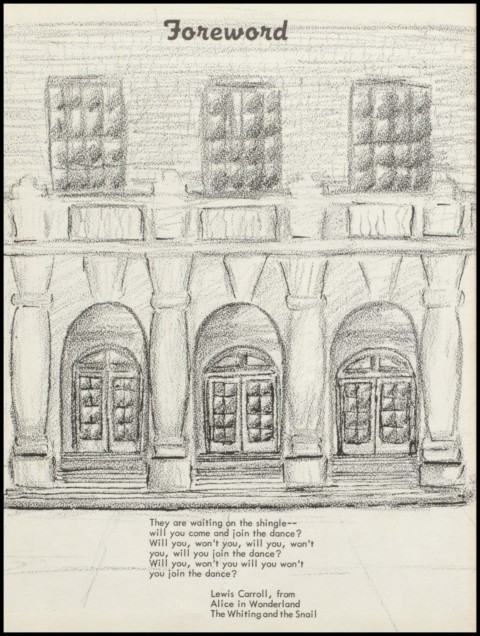 Foreword
They are waiting on the shingle--
will you come and join the dance?
Will you, won't you, will you, won't
you, will you join the dance?
Will you, won't you will you won't
you join the dance?
Lewis Carroll, from
Alice in Wonderland
The Whiting and the Snail